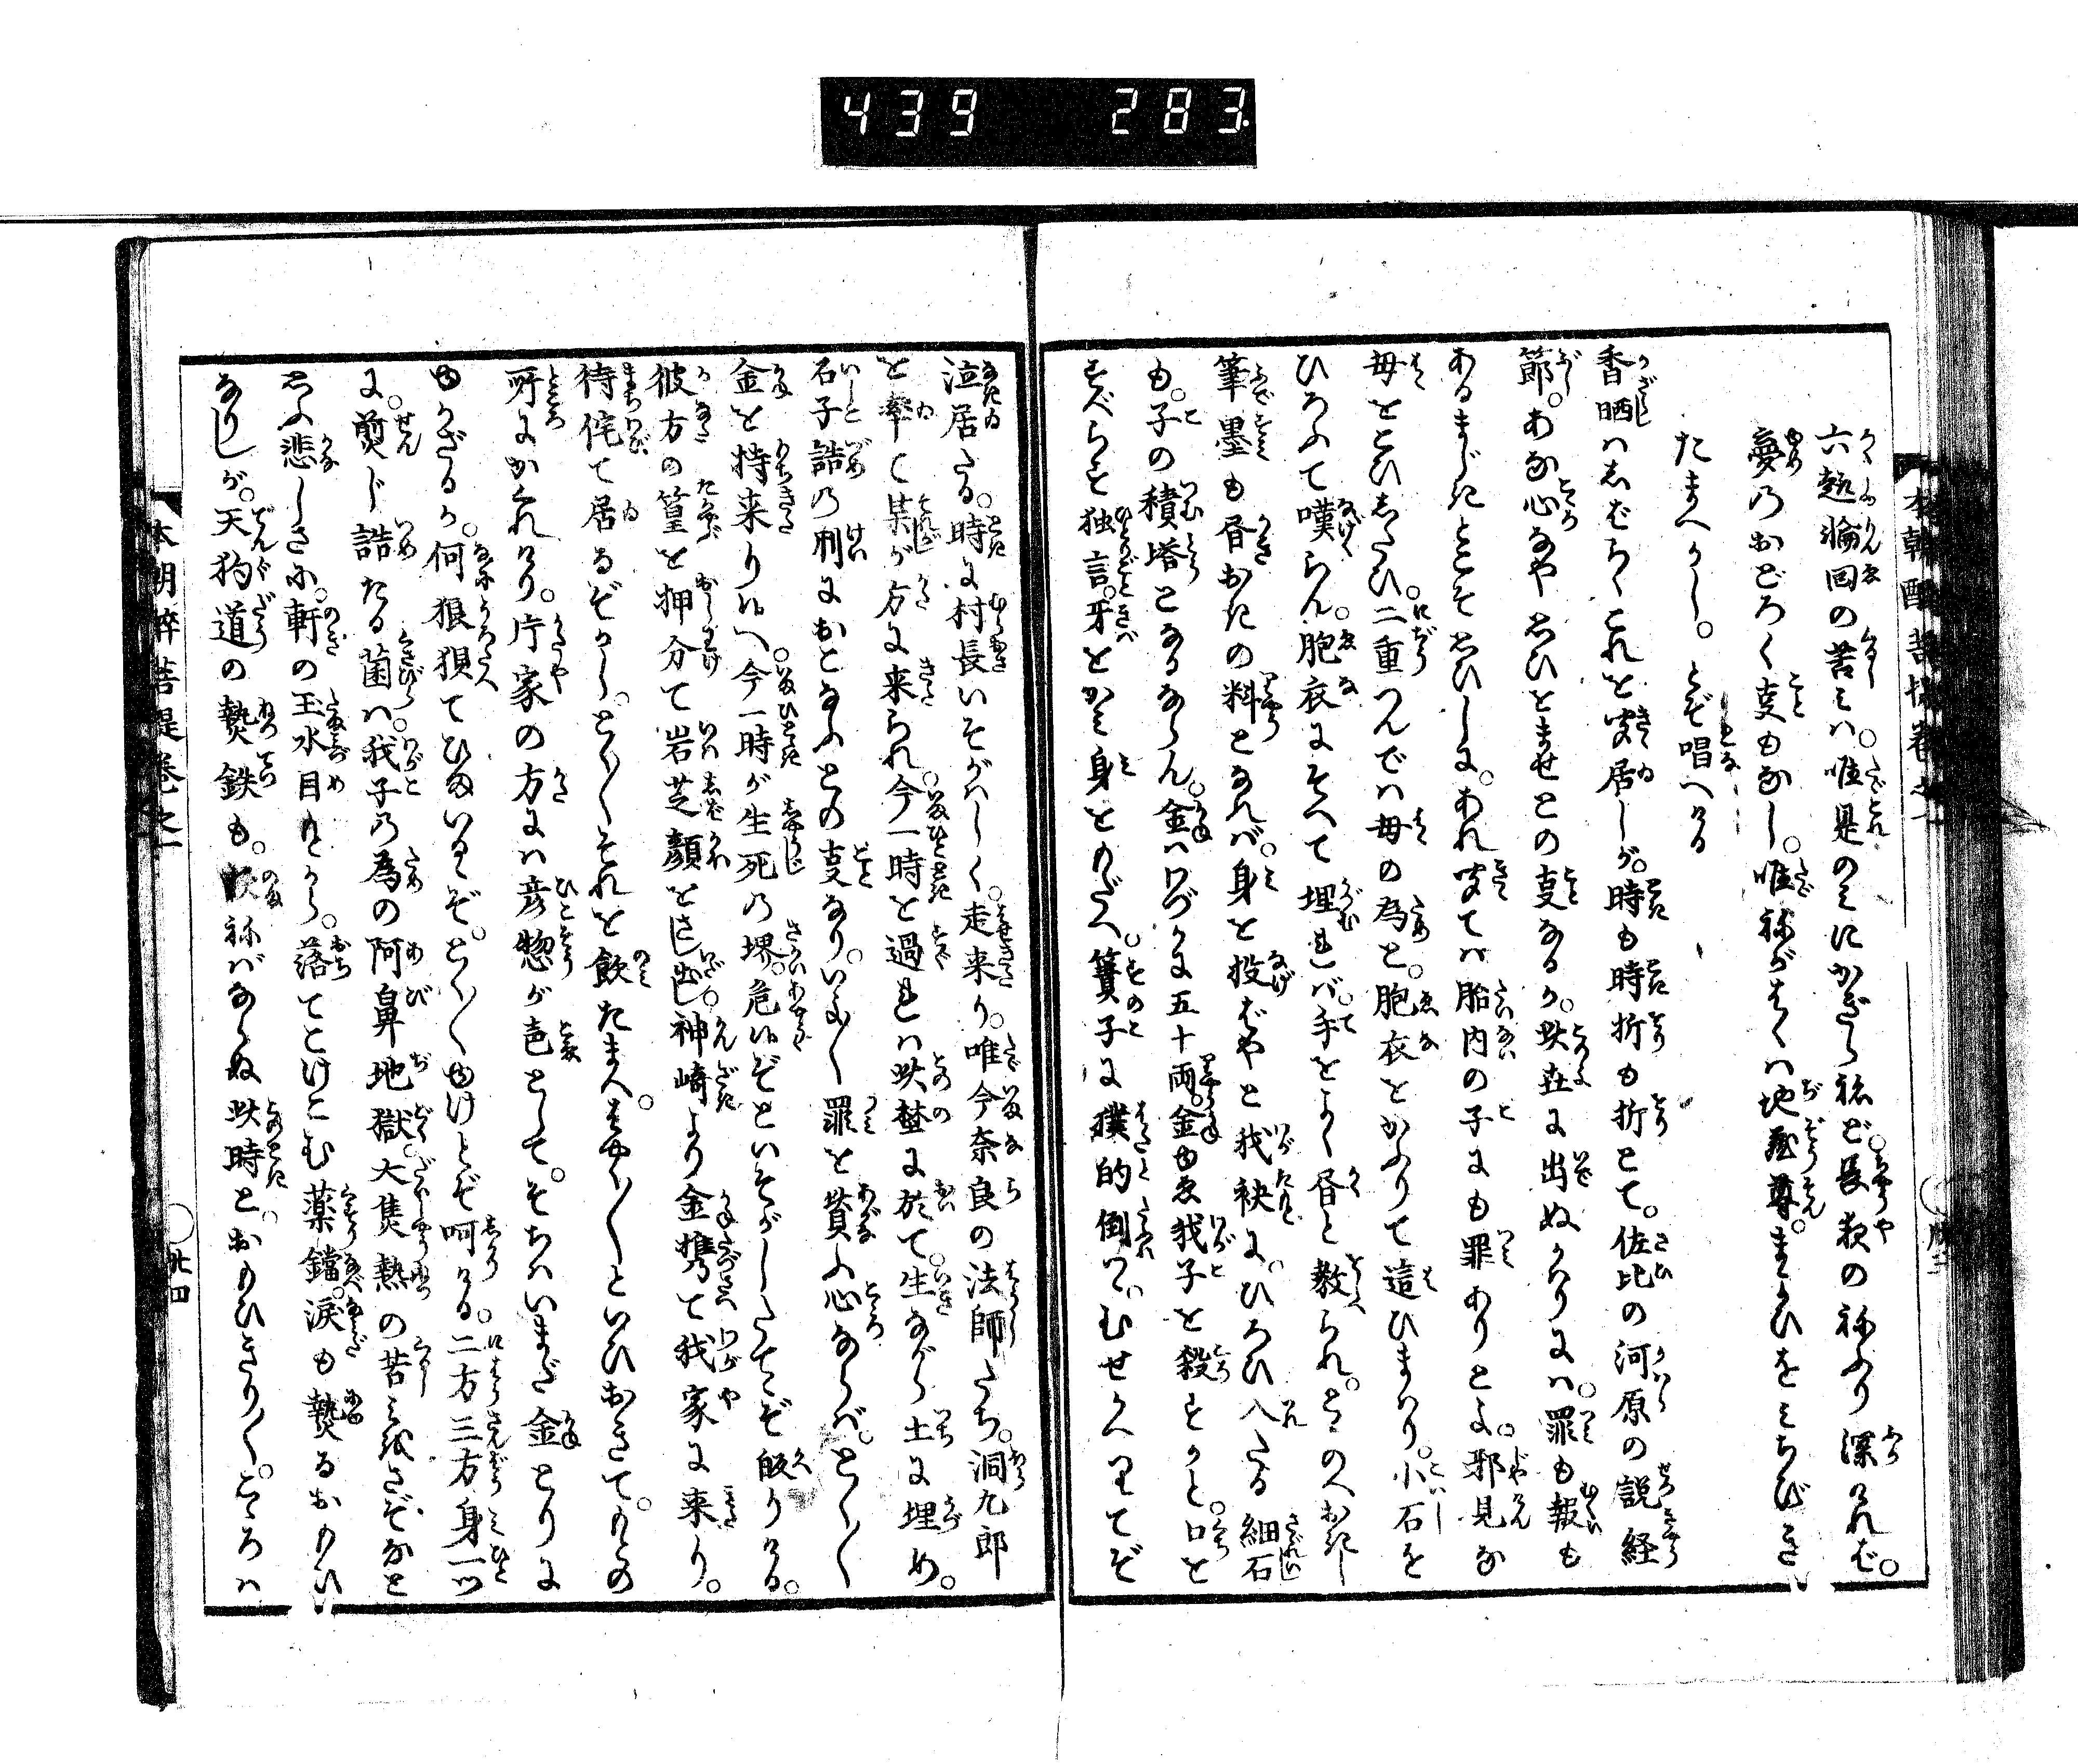 439 283
六趣輪回の苦しみハ。唯是のミにかぎらねど。長夜の祢ふり深けれバ。
夢のおどろく事もなし。唯祢がはくハ地蔵尊。まよひをミちびき
たまへかし。とぞ唱へける
香晒ハしばらくこれを聞居しが。時も時折も折とて。佐比の河原の説経
節。あな心なや思ひませとの事なるか。此世に出ぬかハりにハ。罪も報も
あるまじきとこそ思ひしに。あれ聞てハ胎内の子にも罪ありとよ。邪見な
母をこひしたひ。二重つんでハ母の為と。胞衣をかぶりて這ひまハり。小石を
ひろふて嘆らん。胞衣にそへて埋れバ。手をよく書と教られ。さのへおきし
筆墨も書おきの料となれバ。身を投ばやと我袂に。ひろひ入たる細石
も。子の積塔となるならん。金ハわづかに五十両。金ゆゑ我子を殺すかと。口を
すべらす独言。牙をかミ身をもだへ。簀子に撲的倒て。むせかへりてぞ
泣居たる。時に村長いそがハしく。走来り。唯今奈良の法師たち。洞九郎
を率て某が方に来られ。今一時を過れハ此楚に於て。生ながら土に埋め。
石子詰の刑におこなふとの事なり。いよ〳〵罪を贖ふ心ならバ。とく〳〵
金を持来り給へ。今一時が生死の堺。危給ぞといそがしたてゝぞ皈りける。
彼方の篁を押分て岩芝顔をさし出し。神崎より金携て我家に来り。
待侘て居るぞかし。とく〳〵それを飲たまへ。はやく〳〵といひおきて。もとの
所にかくれけり。庁家の方にハ彦惣が声として。そちハいまだ金とりに
ゆかざるか。何狼狽てひまいるぞ。とく〳〵ゆけとぞ呵ける。二方三方身一ツ
に。煎じ詰たる菌ハ。我子の為の阿鼻地獄。大焦熱の苦しミはさぞなと
思ふ悲しさに。軒の玉水目もとから。落てとけこむ薬鐺。涙も熱るおもひ
なりしが。天狗道の熱鉄も。飲ねバならぬ此時と。おもひきり〳〵。こゝろハ
本朝酔菩提巻之一
廿四